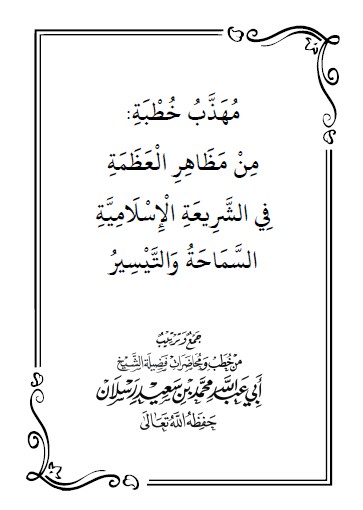 مُهَذَّبُ خُطْبَةِ:
مِنْ مَظَاهِرِ الْعَظَمَةِ
فِي الشَّرِيعَةِ الْإِسْلَامِيَّةِ
السَّمَاحَةُ وَالتَّيْسِيرُ
جَمْعُ وَتَرْتِيبُ
مِنْ خُطَبِ وَمُحَاضَرَاتِ فَضِيلَةِ الشَّيْخِ
أَبِي عَبْدِ اللَّهِ مُحَمَّدِ بْنِ سَعِيدِ رَسْلَان
حَفِظَهُ اللَّهُ تَعَالَى